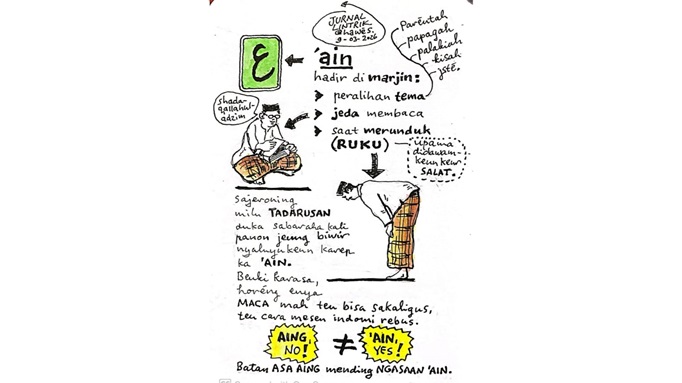 JURNAL
LINTRIK
@hawe5.
9-03-2026
ع
'ain
hadir di marjin:
peralihan tema
jeda membaca
saat merunduk
(RUKU)
Paréntah
papagah
palakiah
kisah
jsté.
shada-
qallahul-
adzim
upama
didawam-
keun keur
SALAT.
Sajeroning
milu TADARUSAN
duka sabaraha kali
panon jeung biwir
nyaluyukeun karep
ka 'AIN.
Beuki karasa,
horéng enya
MACA mah teu bisa sakaligus,
teu cara mesen indomi rebus.
AING,
NO!
≠
'AIN,
YES!
Batan ASA AING mending NGASAAN 'AIN.